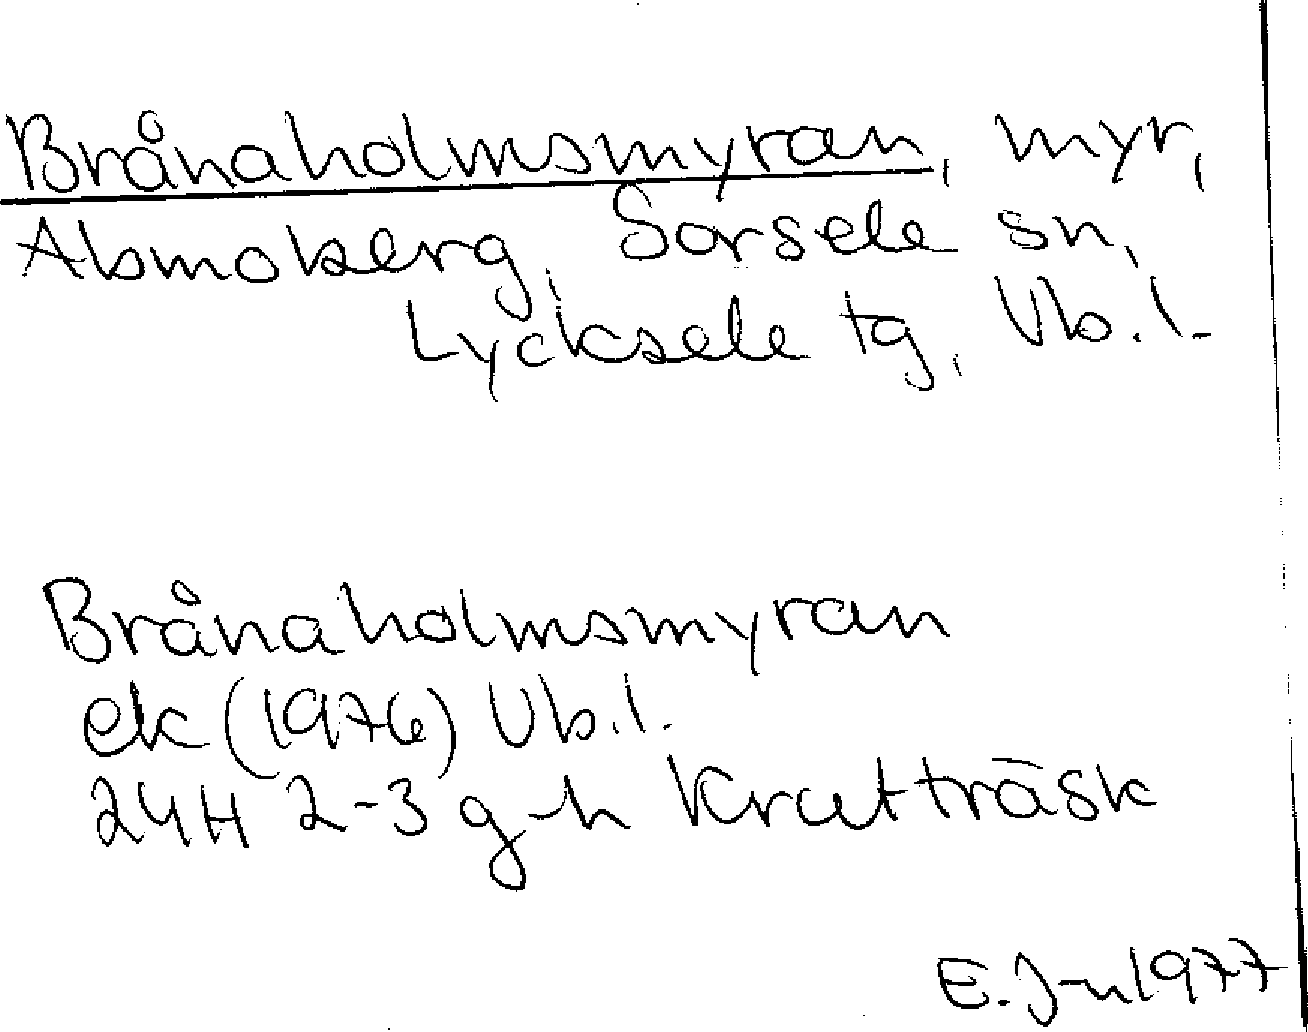 Brånaholmsmyran, myr,
Abmoberg, Sorsele sn,
Lycksele tg, Vb.l.
Brånaholmsmyran
ek (1976) Vb.l.
24H 2-3 g-h Krutträsk
E. J-n 1977